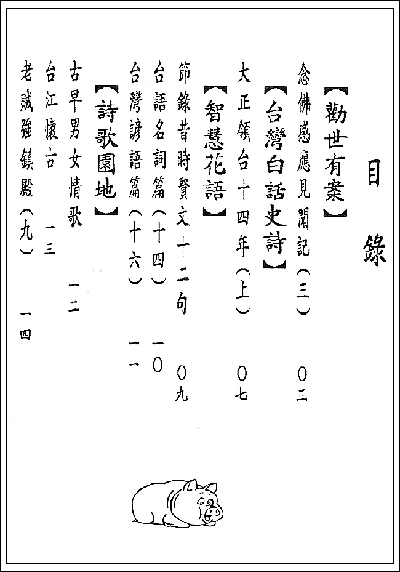 目錄
【勸世有案】
念佛感應見聞記(三) 〇二
【台灣白話史詩】
大正領台十四年(上) 〇七
【智慧花語】
節錄昔時賢文十二句 〇九
台語名詞篇(十四) 一〇
台灣諺語篇(十六) 一一
【詩歌園地】
古早男女情歌 一二
台江懷古 一三
老誠強鎮殿(九) 一四